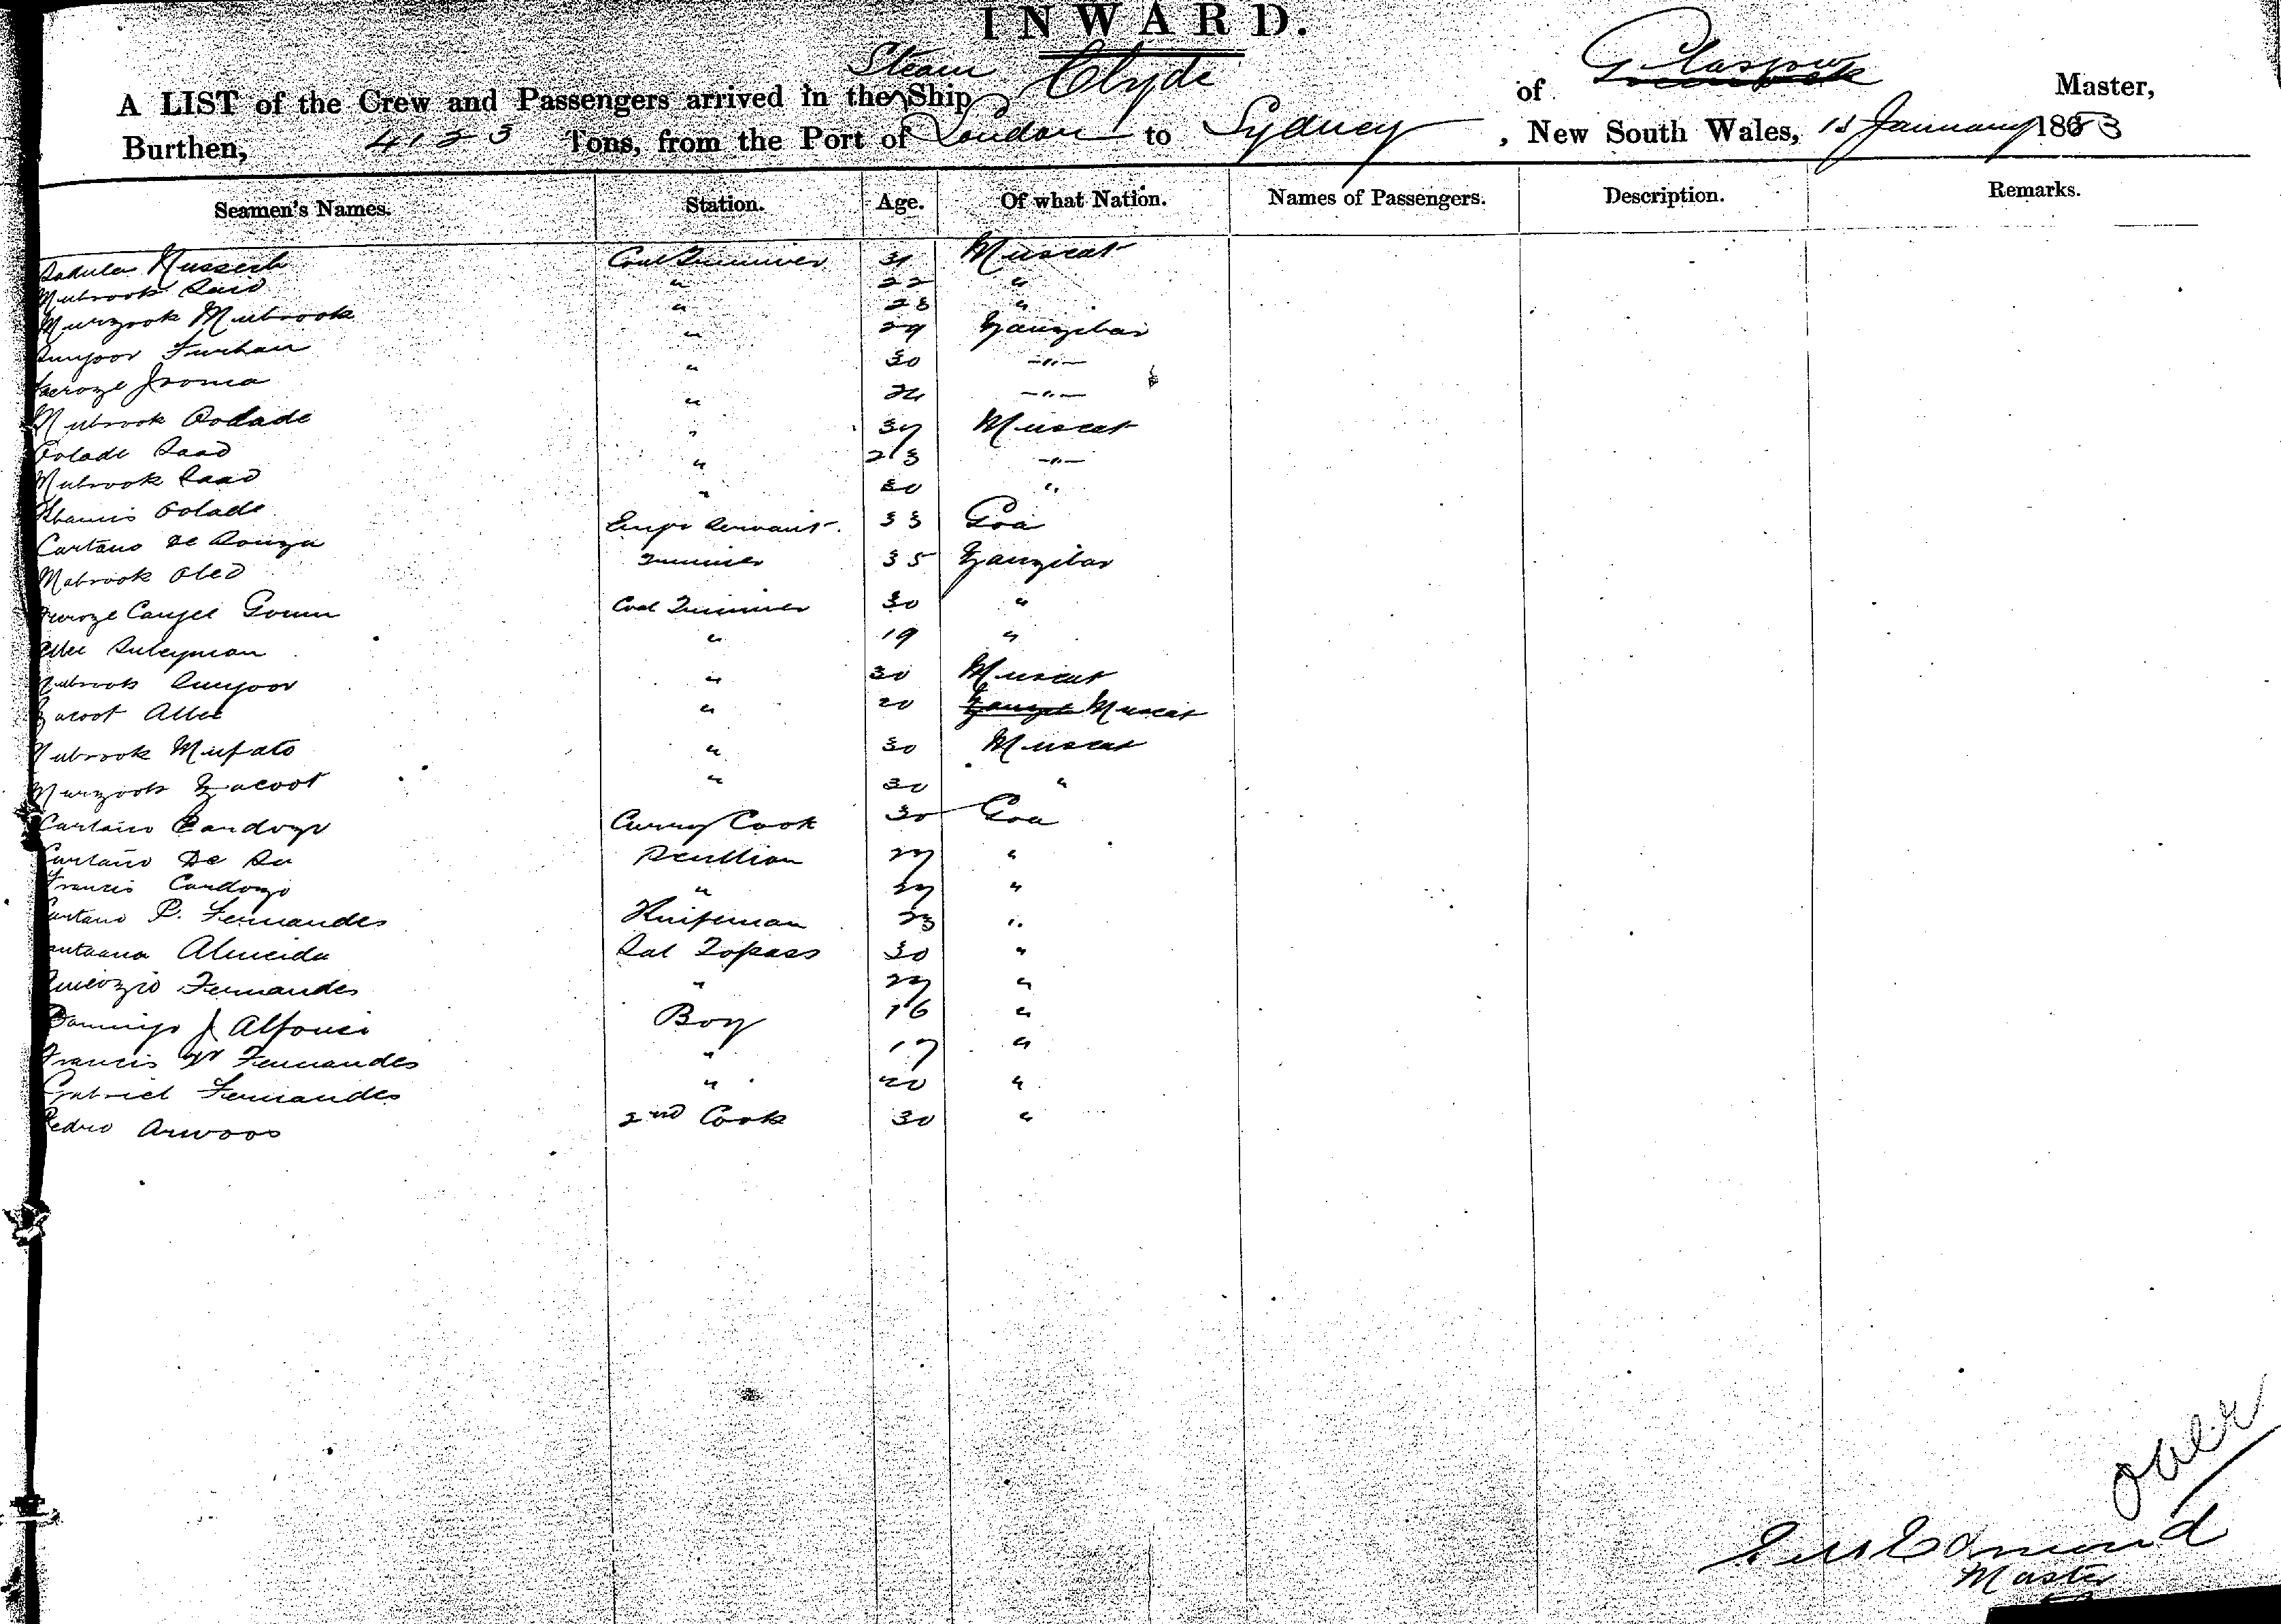 INWARD.
A LIST of the Crew and Passengers arrived in the Steam Ship Clyde of Glasgow Master,
Burthen, 4123 Tons, from the Port of London to Sydney, New South Wales, 13 January 1883
Seamen's Names. Station. Age. Of what Nation. Names of Passengers. Description. Remarks.
Coal Trimmer 31 Muscat
Mubrook Said " 22 "
Murzook Mubrook " 28 "
Furhan " 29 Zanzibar
Feroze Jooma " 30 -"-
Mubrook Oolade " 24 -"-
Oolade Saad " 37 Muscat
Mubrook Saad " 23 -"-
Khamis Oolade " 30 "
Caetano De Souza Engrs Servant. 33 Goa
Mabrook Trimmer 35 Zanzibar
Feroze Coal Trimmer 30 "
Allee Suleyman " 19 "
Mubrook " 30 Muscat
Zacoot Allee " 20 Muscat
Mubrook " 30 Muscat
Murzook Zacoot " 30 "
Caetano Cardozo Curry Cook 30 Goa
Caetano De Sa Scullion 27 "
Francis Cardozo " 27 "
Caetano P. Fernandes Knifeman 23 "
Almeida Sal Topass 30 "
Fernandes " 27 "
Domingo J Alfonso Boy 16 "
Francis Fernandes " 17 "
Gabriel Fernandes " 20 "
Pedro 2nd Cook 30 "
over
Edmond
Master